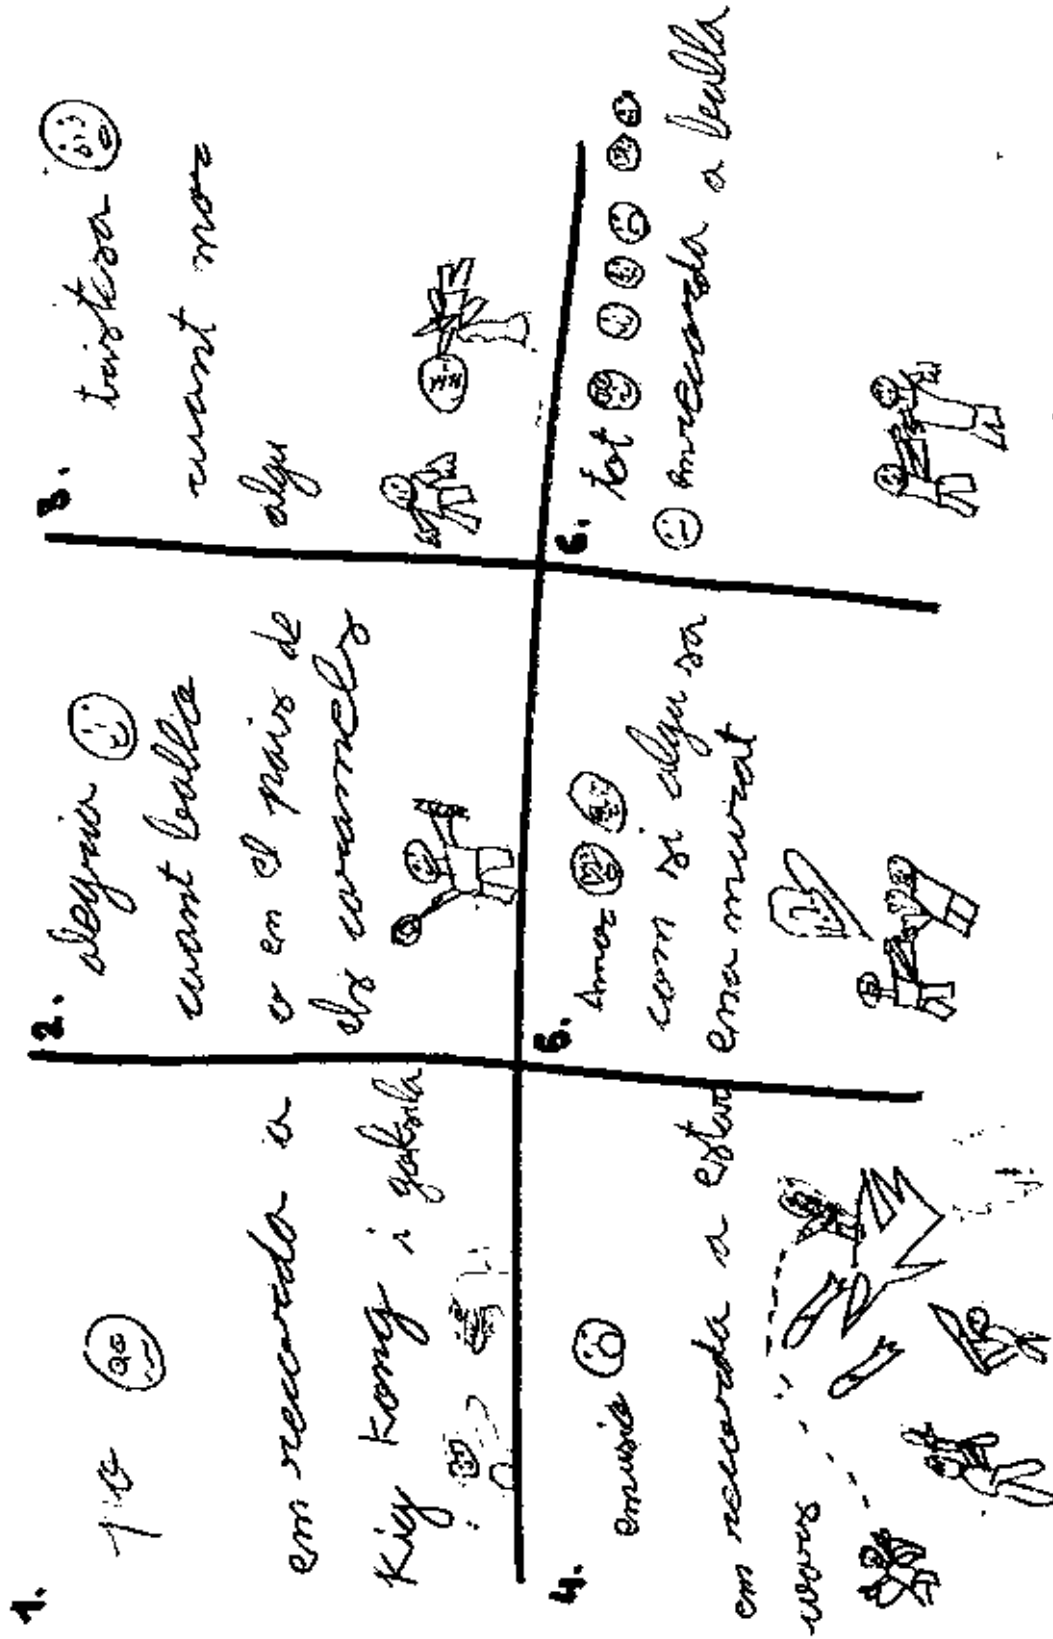 1.
em recorda a
Kig Kong i goksila
2. alegria
cuant ballo
o en el pais de
els caramels
3. tristesa
cuant mor
algu
4. emusio
em recorda a estar
wars
5. Amor
com si algu sa
enamurat
6. tot
Amrecorda a